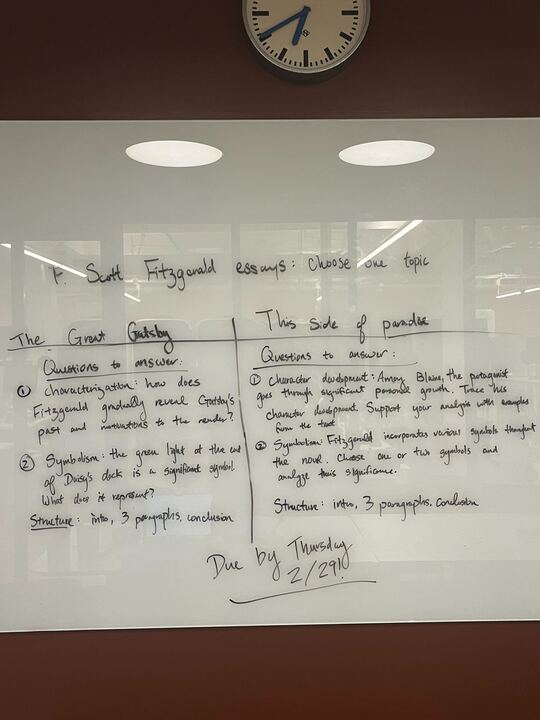 F. Scott Fitzgerald essays: Choose one topic
The Great Gatsby
Questions to answer:
① Characterization: how does
Fitzgerald gradually reveal Gatsby's
past and motivations to the reader?
② Symbolism: the green light at the end
of Daisy's dock is a significant symbol.
What does it represent?
Structure: intro, 3 paragraphs, conclusion
This Side of paradise
Questions to answer:
① Character development: Amory Blaine, the protagonist
goes through significant personal growth. Trace his
character development. Support your analysis with examples
from the text
② Symbolism: Fitzgerald incorporates various symbols throughout
the novel. Choose one or two symbols and
analyze their significance.
Structure: intro, 3 paragraphs, conclusion
Due by Thursday
2/29!